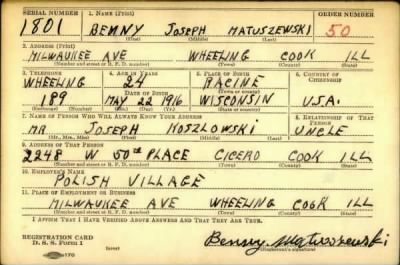 SERIAL NUMBER 1. NAME (Print) ORDER NUMBER
1801 BENNY JOSEPH MATUSZEWSKI 50
(First) (Middle) (Last)
2. ADDRESS (Print)
MILWAUKEE AVE WHEELING COOK ILL
(Number and street or R. F. D. number) (Town) (County) (State)
3. TELEPHONE 4. AGE IN YEARS 5. PLACE OF BIRTH 6. COUNTRY OF CITIZENSHIP
WHEELING 24 RACINE
DATE OF BIRTH
189 MAY 22 1916 WISCONSIN U.S.A.
(Exchange) (Number) (Mo.) (Day) (Yr.) (State or country)
7. NAME OF PERSON WHO WILL ALWAYS KNOW YOUR ADDRESS 8. RELATIONSHIP OF THAT PERSON
MR JOSEPH KOSZLOWSKI UNCLE
(Mr., Mrs., Miss) (First) (Middle) (Last)
9. ADDRESS OF THAT PERSON
2248 W 50TH PLACE CICERO COOK ILL
(Number and street or R. F. D. number) (Town) (County) (State)
10. EMPLOYER'S NAME
POLISH VILLAGE
11. PLACE OF EMPLOYMENT OR BUSINESS
MILWAUKEE AVE WHEELING COOK ILL
(Number and street or R. F. D. number) (Town) (County) (State)
I AFFIRM THAT I HAVE VERIFIED ABOVE ANSWERS AND THAT THEY ARE TRUE.
REGISTRATION CARD
D. S. S. Form 1
Benny Matuszewski
(Registrant's signature)